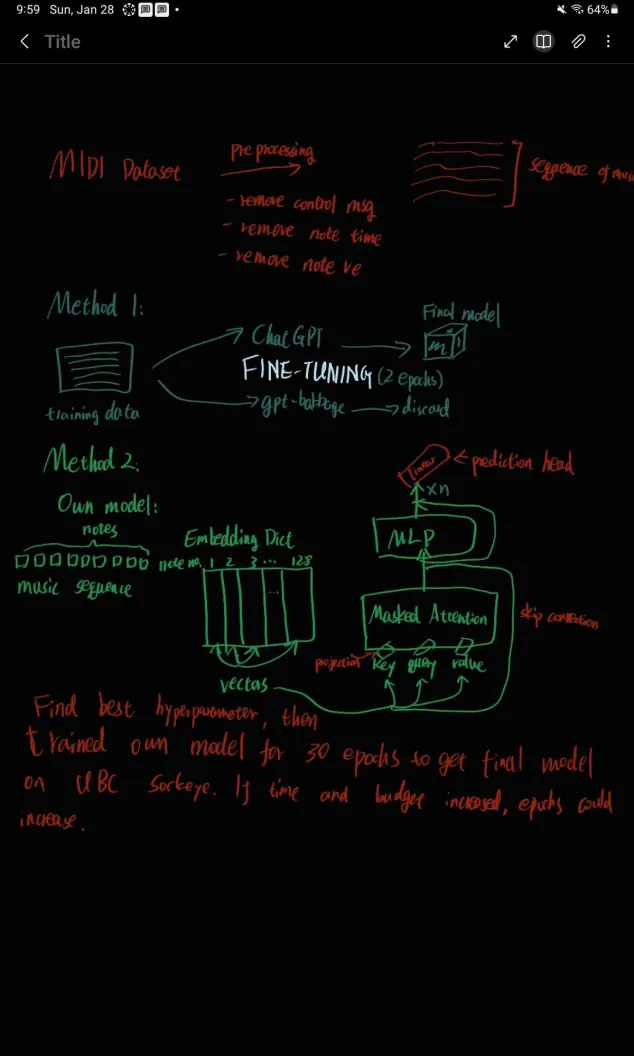 9:59 Sun, Jan 28
64%
Title
MIDI Dataset
Preprocessing
- remove control msg
- remove note time
- remove note ve
sequence of musi
Method 1:
training data
ChatGPT
FINE-TUNING (2 epochs)
gpt-babbage
discard
Final model
m
Method 2:
Own model:
notes
music sequence
Embedding Dict
note no. 1 2 3 ... 128
...
vectors
Linear
prediction head
xn
MLP
Masked Attention
skip connection
projection
key query value
Find best hyperparameter, then
trained own model for 30 epochs to get final model
on UBC Sockeye. If time and budget increased, epochs could
increase.